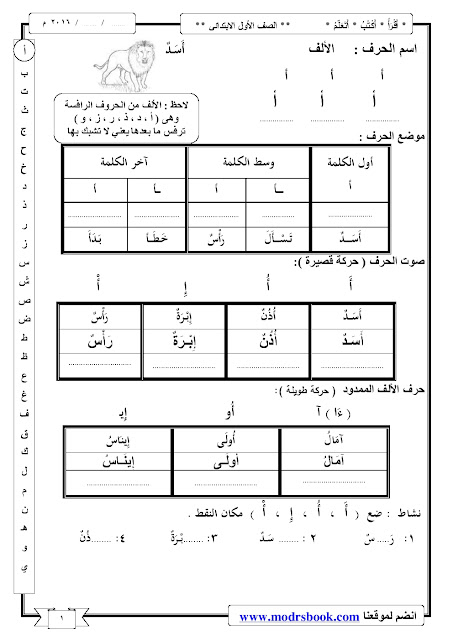 * أَقْرَأُ * أَكْتُبُ * أَتَعَلَّمُ * ** الصف الأول الابتدائى ** ...... / ...... / ٢٠١٦ م
اسم الحرف : الألف أَسَدٌ
أ أ أ
أ أ أ
لاحظ : الألف من الحروف الرافسة
وهى ( أ ، د ، ذ ، ر ، ز ، و )
ترفس ما بعدها يعني لا تشبك بها
موضع الحرف :
أول الكلمة وسط الكلمة آخر الكلمة
أ ـأ أ ـأ أ
أَسَدٌ تَسْـأَلَ رَأْسٌ خَطَـأ بَدَأَ
صوت الحرف ( حركة قصيرة ):
أَ أُ إِ أْ
أَسَدٌ أُذُنٌ إِبْرَةٌ رَأْسٌ
أَسَدٌ أُذُنٌ إِبْـرَةٌ رَأْسٌ
حرف الألف الممدود ( حركة طويلة ):
( ءَا ) آ أُو إِيـ
آمَالُ أُولَى إِينَاسُ
آمَالُ أُولَـى إِينَـاسُ
نشاط : ضع ( أَ ، أُ ، إِ ، أْ ) مكان النقط .
١: رَ.....سٌ ٢ : ....... سَدٌ ٣: .......بْرَةٌ ٤: .......ذُنٌ
أ
ب
ت
ث
ج
ح
خ
د
ذ
ر
ز
س
ش
ص
ض
ط
ظ
ع
غ
ف
ق
ك
ل
م
ن
هـ
و
ي
انضم لموقعنا www.modrsbook.com
١